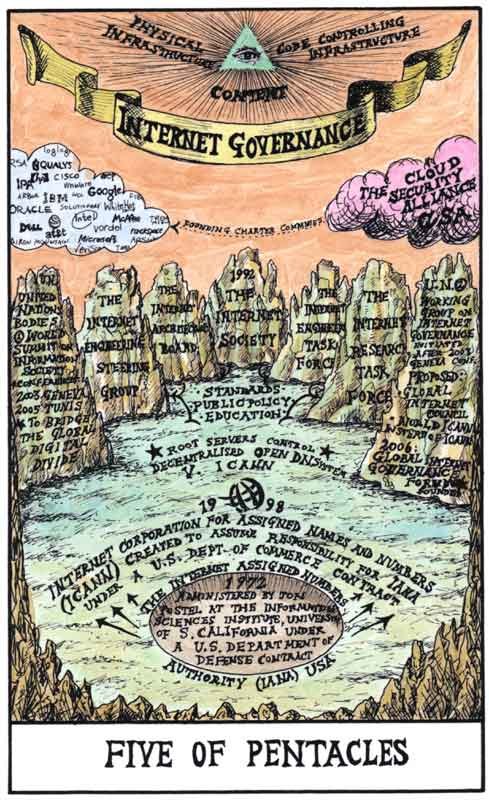 PHYSICAL
INFRASTRUCTURE
CODE CONTROLLING
INFRASTRUCTURE
CONTENT
INTERNET GOVERNANCE
RSA QUALYS
CISCO
IBM Google
ORACLE
Intel McAfee
DELL at&t Vordel rackspace
IRON MOUNTAIN Microsoft
VeriSign
THE CLOUD
SECURITY
ALLIANCE
USA
FOUNDING CHARTER COMMITTEE
U.N.
UNITED
NATIONS
BODIES
WORLD
SUMMIT ON
INFORMATION
SOCIETY
2003 GENEVA
2005 TUNIS
TO BRIDGE
THE GLOBAL
DIGITAL
DIVIDE
THE
INTERNET
ENGINEERING
STEERING
GROUP
THE
INTERNET
ARCHITECTURE
BOARD
1992
THE
INTERNET
SOCIETY
THE
INTERNET
ENGINEER
TASK
FORCE
THE
INTERNET
RESEARCH
TASK
FORCE
U.N.
WORKING
GROUP ON
INTERNET
GOVERNANCE
INITIATED
AFTER 2003
GENEVA CONF.
PROPOSED:
GLOBAL
INTERNET
COUNCIL
WORLD ICANN
INSTEAD OF ICANN
2006:
GLOBAL INTERNET
GOVERNANCE
FORUM
FOUNDED
STANDARDS
PUBLIC POLICY
EDUCATION
ROOT SERVERS CONTROL
DECENTRALISED OPEN DNS
V. ICANN
1998
INTERNET CORPORATION FOR ASSIGNED NAMES AND NUMBERS
(ICANN) CREATED TO ASSUME RESPONSIBILITY FOR IANA
UNDER A U.S. DEPT. OF COMMERCE CONTRACT
THE INTERNET ASSIGNED NUMBERS
1972
ADMINISTERED BY JON
POSTEL AT THE INFORMATION
SCIENCES INSTITUTE, UNIVERSITY
OF S. CALIFORNIA UNDER
A U.S. DEPARTMENT OF
DEFENSE CONTRACT
AUTHORITY (IANA) USA
FIVE OF PENTACLES